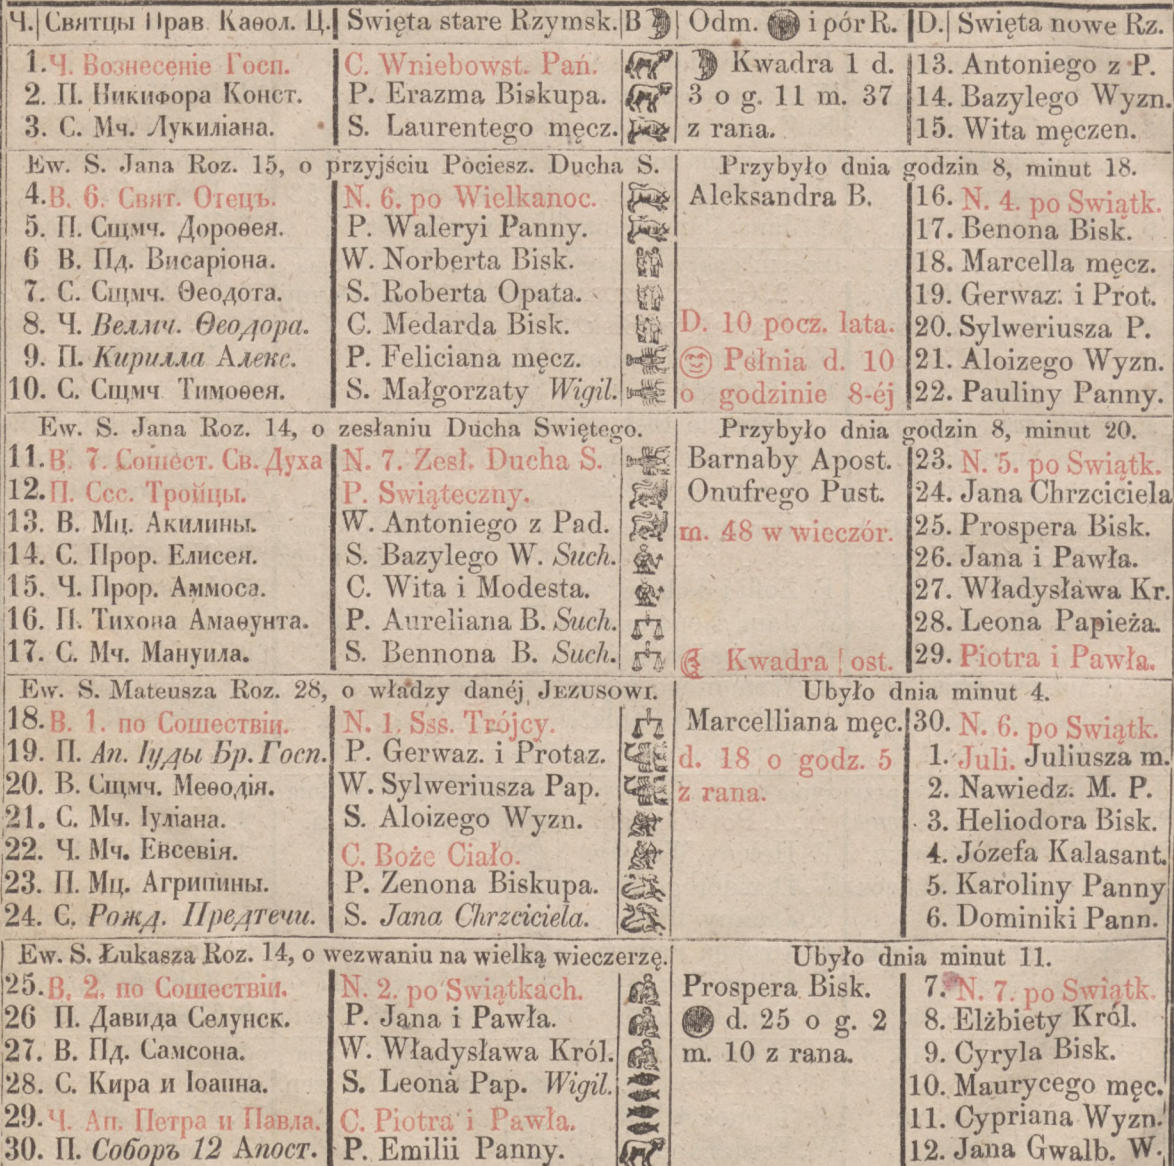 Ч. Святцы Прав. Каѳол. Ц. Święta stare Rzymsk. B Odm. i pór R. D. Święta nowe Rz.
1. Ч. Вознесеніе Госп. C. Wniebowst. Pań. Kwadra 1 d. 13. Antoniego z P.
2. П. Никифора Конст. P. Erazma Biskupa. 3 o g. 11 m. 37 14. Bazylego Wyzn.
3. С. Мч. Лукиліана. S. Laurentego męcz. z rana. 15. Wita męczen.
Ew. S. Jana Roz. 15, o przyjściu Pociesz. Ducha S. Przybyło dnia godzin 8, minut 18.
4. В. 6. Свят. Отецъ. N. 6. po Wielkanoc. Aleksandra B. 16. N. 4. po Swiątk.
5. П. Сщмч. Дороѳея. P. Waleryi Panny. 17. Benona Bisk.
6 В. Пд. Висаріона. W. Norberta Bisk. 18. Marcella męcz.
7. С. Сщмч. Ѳеодота. S. Roberta Opata. 19. Gerwaz. i Prot.
8. Ч. Велмч. Ѳеодора. C. Medarda Bisk. D. 10 pocz. lata. 20. Sylweriusza P.
9. П. Кирилла Алекс. P. Feliciana męcz. Pełnia d. 10 21. Aloizego Wyzn.
10. С. Сщмч Тимоѳея. S. Małgorzaty Wigil. o godzinie 8-éj 22. Pauliny Panny.
Ew. S. Jana Roz. 14, o zesłaniu Ducha Swiętego. Przybyło dnia godzin 8, minut 20.
11. В. 7. Сошест. Св. Духа N. 7. Zesł. Ducha S. Barnaby Apost. 23. N. 5. po Swiątk.
12. П. Ссс. Тройцы. P. Swiąteczny. Onufrego Pust. 24. Jana Chrzciciela
13. В. Мц. Акилины. W. Antoniego z Pad. m. 48 w wieczór. 25. Prospera Bisk.
14. С. Прор. Елисея. S. Bazylego W. Such. 26. Jana i Pawła.
15. Ч. Прор. Аммоса. C. Wita i Modesta. 27. Władysława Kr.
16. П. Тихона Амаѳунта. P. Aureliana B. Such. 28. Leona Papieża.
17. С. Мч. Мануила. S. Bennona B. Such. Kwadra ost. 29. Piotra i Pawła.
Ew. S. Mateusza Roz. 28, o władzy danéj JEZUSOWI. Ubyło dnia minut 4.
18. В. 1. по Сошествіи. N. 1. Sss. Trójcy. Marcelliana męc. 30. N. 6. po Swiątk.
19. П. Ап. Іуды Бр. Госп. P. Gerwaz. i Protaz. d. 18 o godz. 5 1. Juli. Juliusza m.
20. В. Сщмч. Меѳодія. W. Sylweriusza Pap. z rana. 2. Nawiedz. M. P.
21. С. Мч. Іуліана. S. Aloizego Wyzn. 3. Heliodora Bisk.
22. Ч. Мч. Евсевія. C. Boże Ciało. 4. Józefa Kalasant.
23. П. Мц. Агрипины. P. Zenona Biskupa. 5. Karoliny Panny
24. С. Рожд. Предтечи. S. Jana Chrzciciela. 6. Dominiki Pann.
Ew. S. Łukasza Roz. 14, o wezwaniu na wielką wieczerzę. Ubyło dnia minut 11.
25. В. 2. по Сошествіи. N. 2. po Swiątkach. Prospera Bisk. 7. N. 7. po Swiątk.
26 П. Давида Селунск. P. Jana i Pawła. d. 25 o g. 2 8. Elżbiety Król.
27. В. Пд. Самсона. W. Władysława Król. m. 10 z rana. 9. Cyryla Bisk.
28. С. Кира и Іоанна. S. Leona Pap. Wigil. 10. Maurycego męc.
29. Ч. Ап. Петра и Павла. C. Piotra i Pawła. 11. Cypriana Wyzn.
30. П. Соборъ 12 Апост. P. Emilii Panny. 12. Jana Gwalb. W.